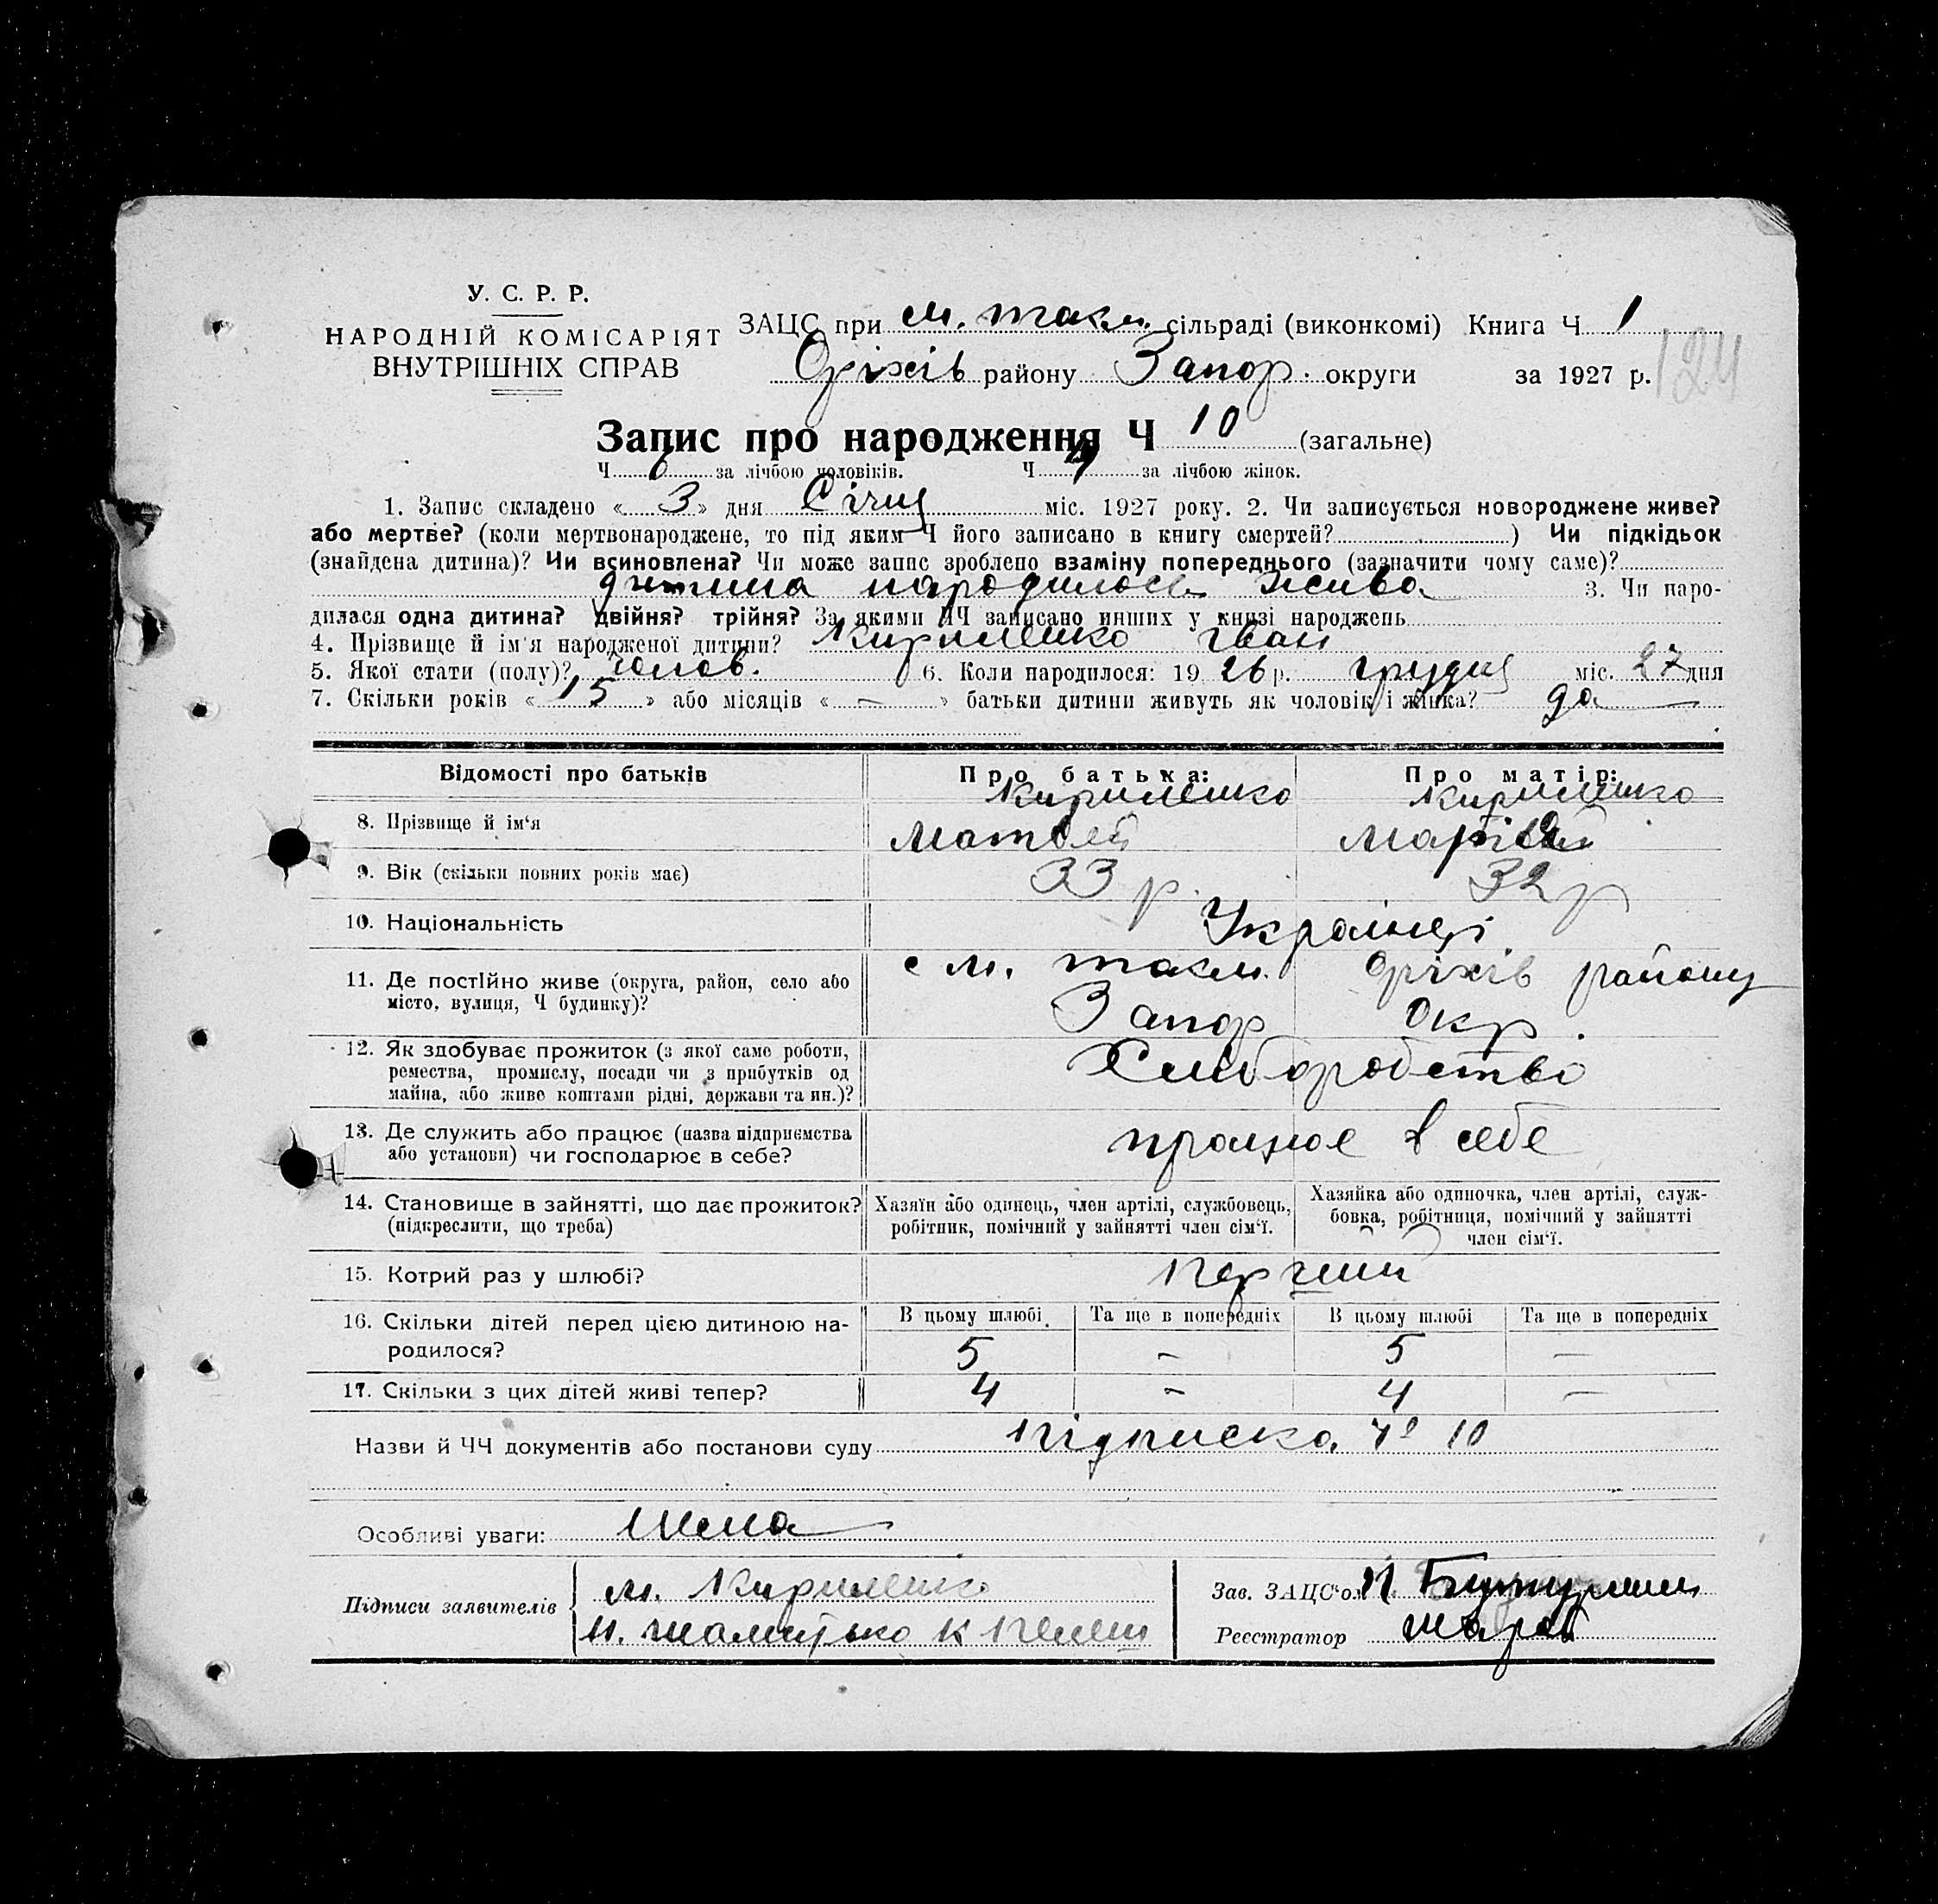 У. С. Р. Р.
НАРОДНІЙ КОМІСАРІЯТ
ВНУТРІШНІХ СПРАВ
ЗАЦС при м. Токм. сільраді (виконкомі) Книга Ч 1
Оріхів району Запор. округи за 1927 р.
124
Запис про народження Ч 10 (загальне)
Ч 6 за лічбою чоловіків. Ч 4 за лічбою жінок.
1. Запис складено « 3 » дня Січня міс. 1927 року. 2. Чи записується новороджене живе?
або мертве? (коли мертвонароджене, то під яким Ч його записано в книгу смертей? ) Чи підкідьок
(знайдена дитина)? Чи всиновлена? Чи може запис зроблено взаміну попереднього (зазначити чому саме)?
дитина народилось жива 3. Чи наро-
дилася одна дитина? двійня? трійня? За якими ЧЧ записано инших у книзі народжень
4. Прізвище й ім'я народженої дитини? Кириленко Іван
5. Якої стати (полу)? чолов. 6. Коли народилося: 19 26 р. грудня міс. 27 дня
7. Скільки років « 15 » або місяців « — » батьки дитини живуть як чоловік і жінка? да
Відомості про батьків Про батька: Про матір:
Кириленко Кириленко
8. Прізвище й ім'я Матвій Марія
9. Вік (скільки повних років має) 33 р. 32 р
10. Національність Українці
11. Де постІйно живе (округа, район, село або с м. Токм. Оріхів району
місто, вулиця, Ч будинку)? Запор Окр.
12. Як здобуває прожиток (з якої саме роботи, Хліборобство
ремества, промислу, посади чи з прибутків од
майна, або живе коштами рідні, держави та ин.)?
13. Де служить або працює (назва підприємства працює в себе
або установи) чи господарює в себе?
14. Становище в зайнятті, що дає прожиток? Хазяїн або одинець, член артілі, службовець, Хазяйка або одиночка, член артілі, служ-
(підкреслити, що треба) робітник, помічний у зайнятті член сім'ї. бовка, робітниця, помічний у зайнятті
член сім'ї.
15. Котрий раз у шлюбі? перший
16. Скільки дітей перед цією дитиною на- В цьому шлюбі Та ще в попередніх В цьому шлюбі Та ще в попередніх
родилося? 5 - 5 —
17. Скільки з цих дітей живі тепер? 4 - 4 —
Назви й ЧЧ документів або постанови суду підписка 10
Особливі уваги:
Підписи заявителів М. Кириленко Зав. ЗАЦС'ом
Реєстратор